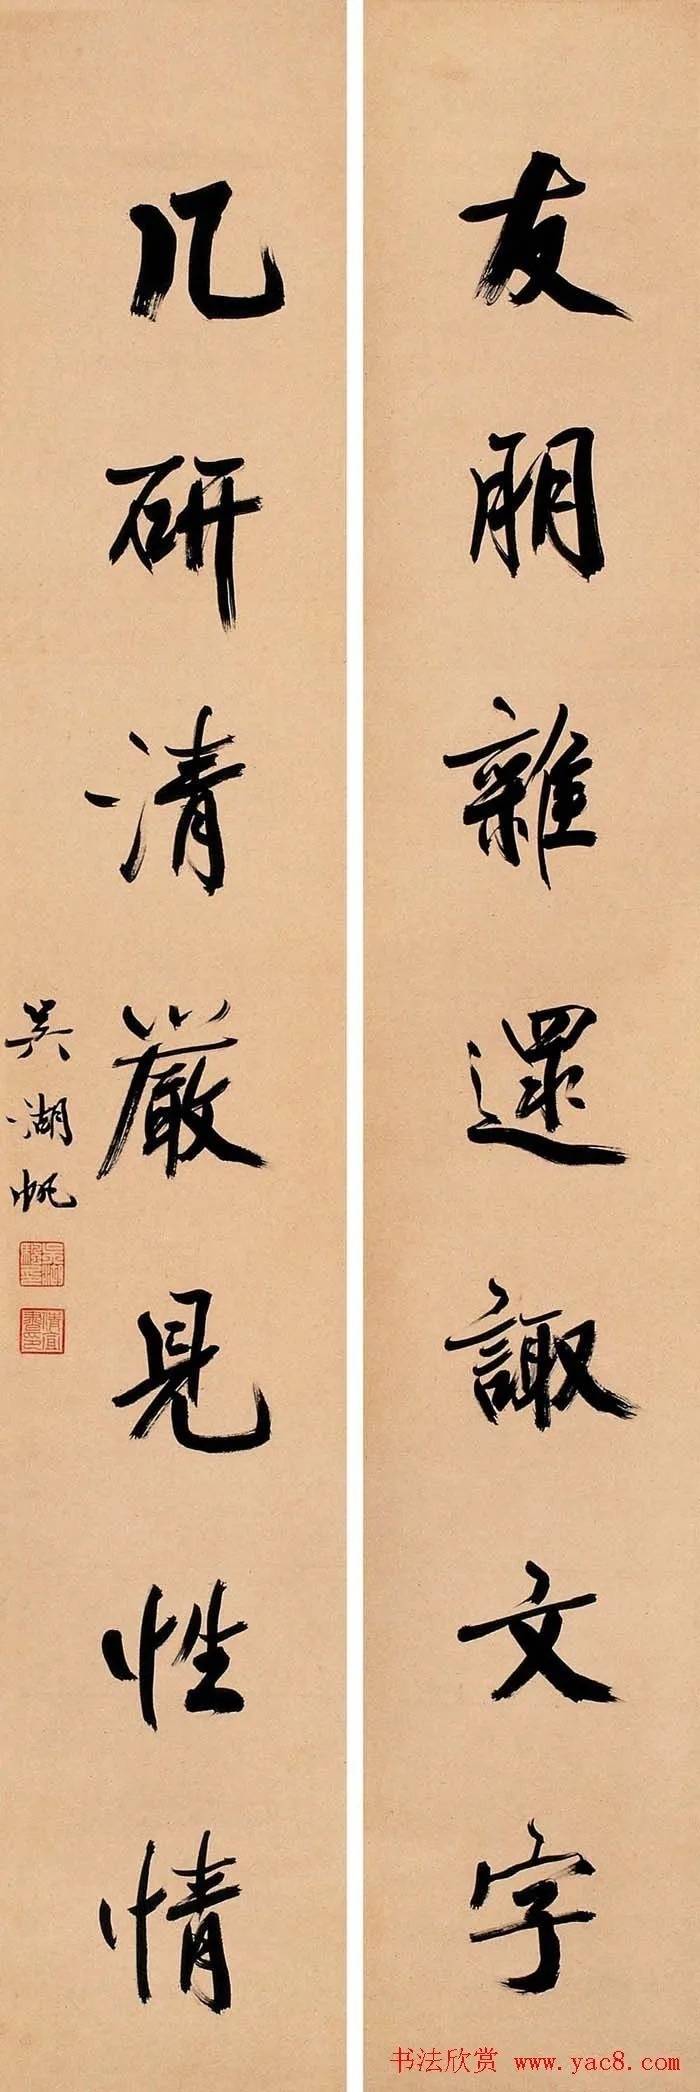 友朋雜遝諏文字
几研清嚴見性情
吳湖帆
书法欣赏 www.yac8.com